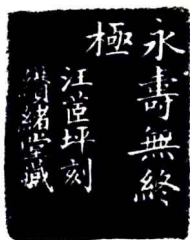 永壽無終
極
汪茝坪刻
纘緒堂藏